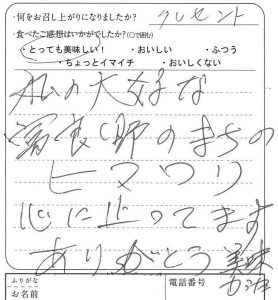 ・何をお召し上がりになりましたか？ クレセント
・食べたご感想はいかがでしたか？(〇で囲む)
・とっても美味しい！ ・おいしい ・ふつう
・ちょっとイマイチ ・おいしくない
私の大好な
富良野のまちの
ヒマワリ
心に止ってます
ありがとう 美味
ふりがな
お名前
電話番号